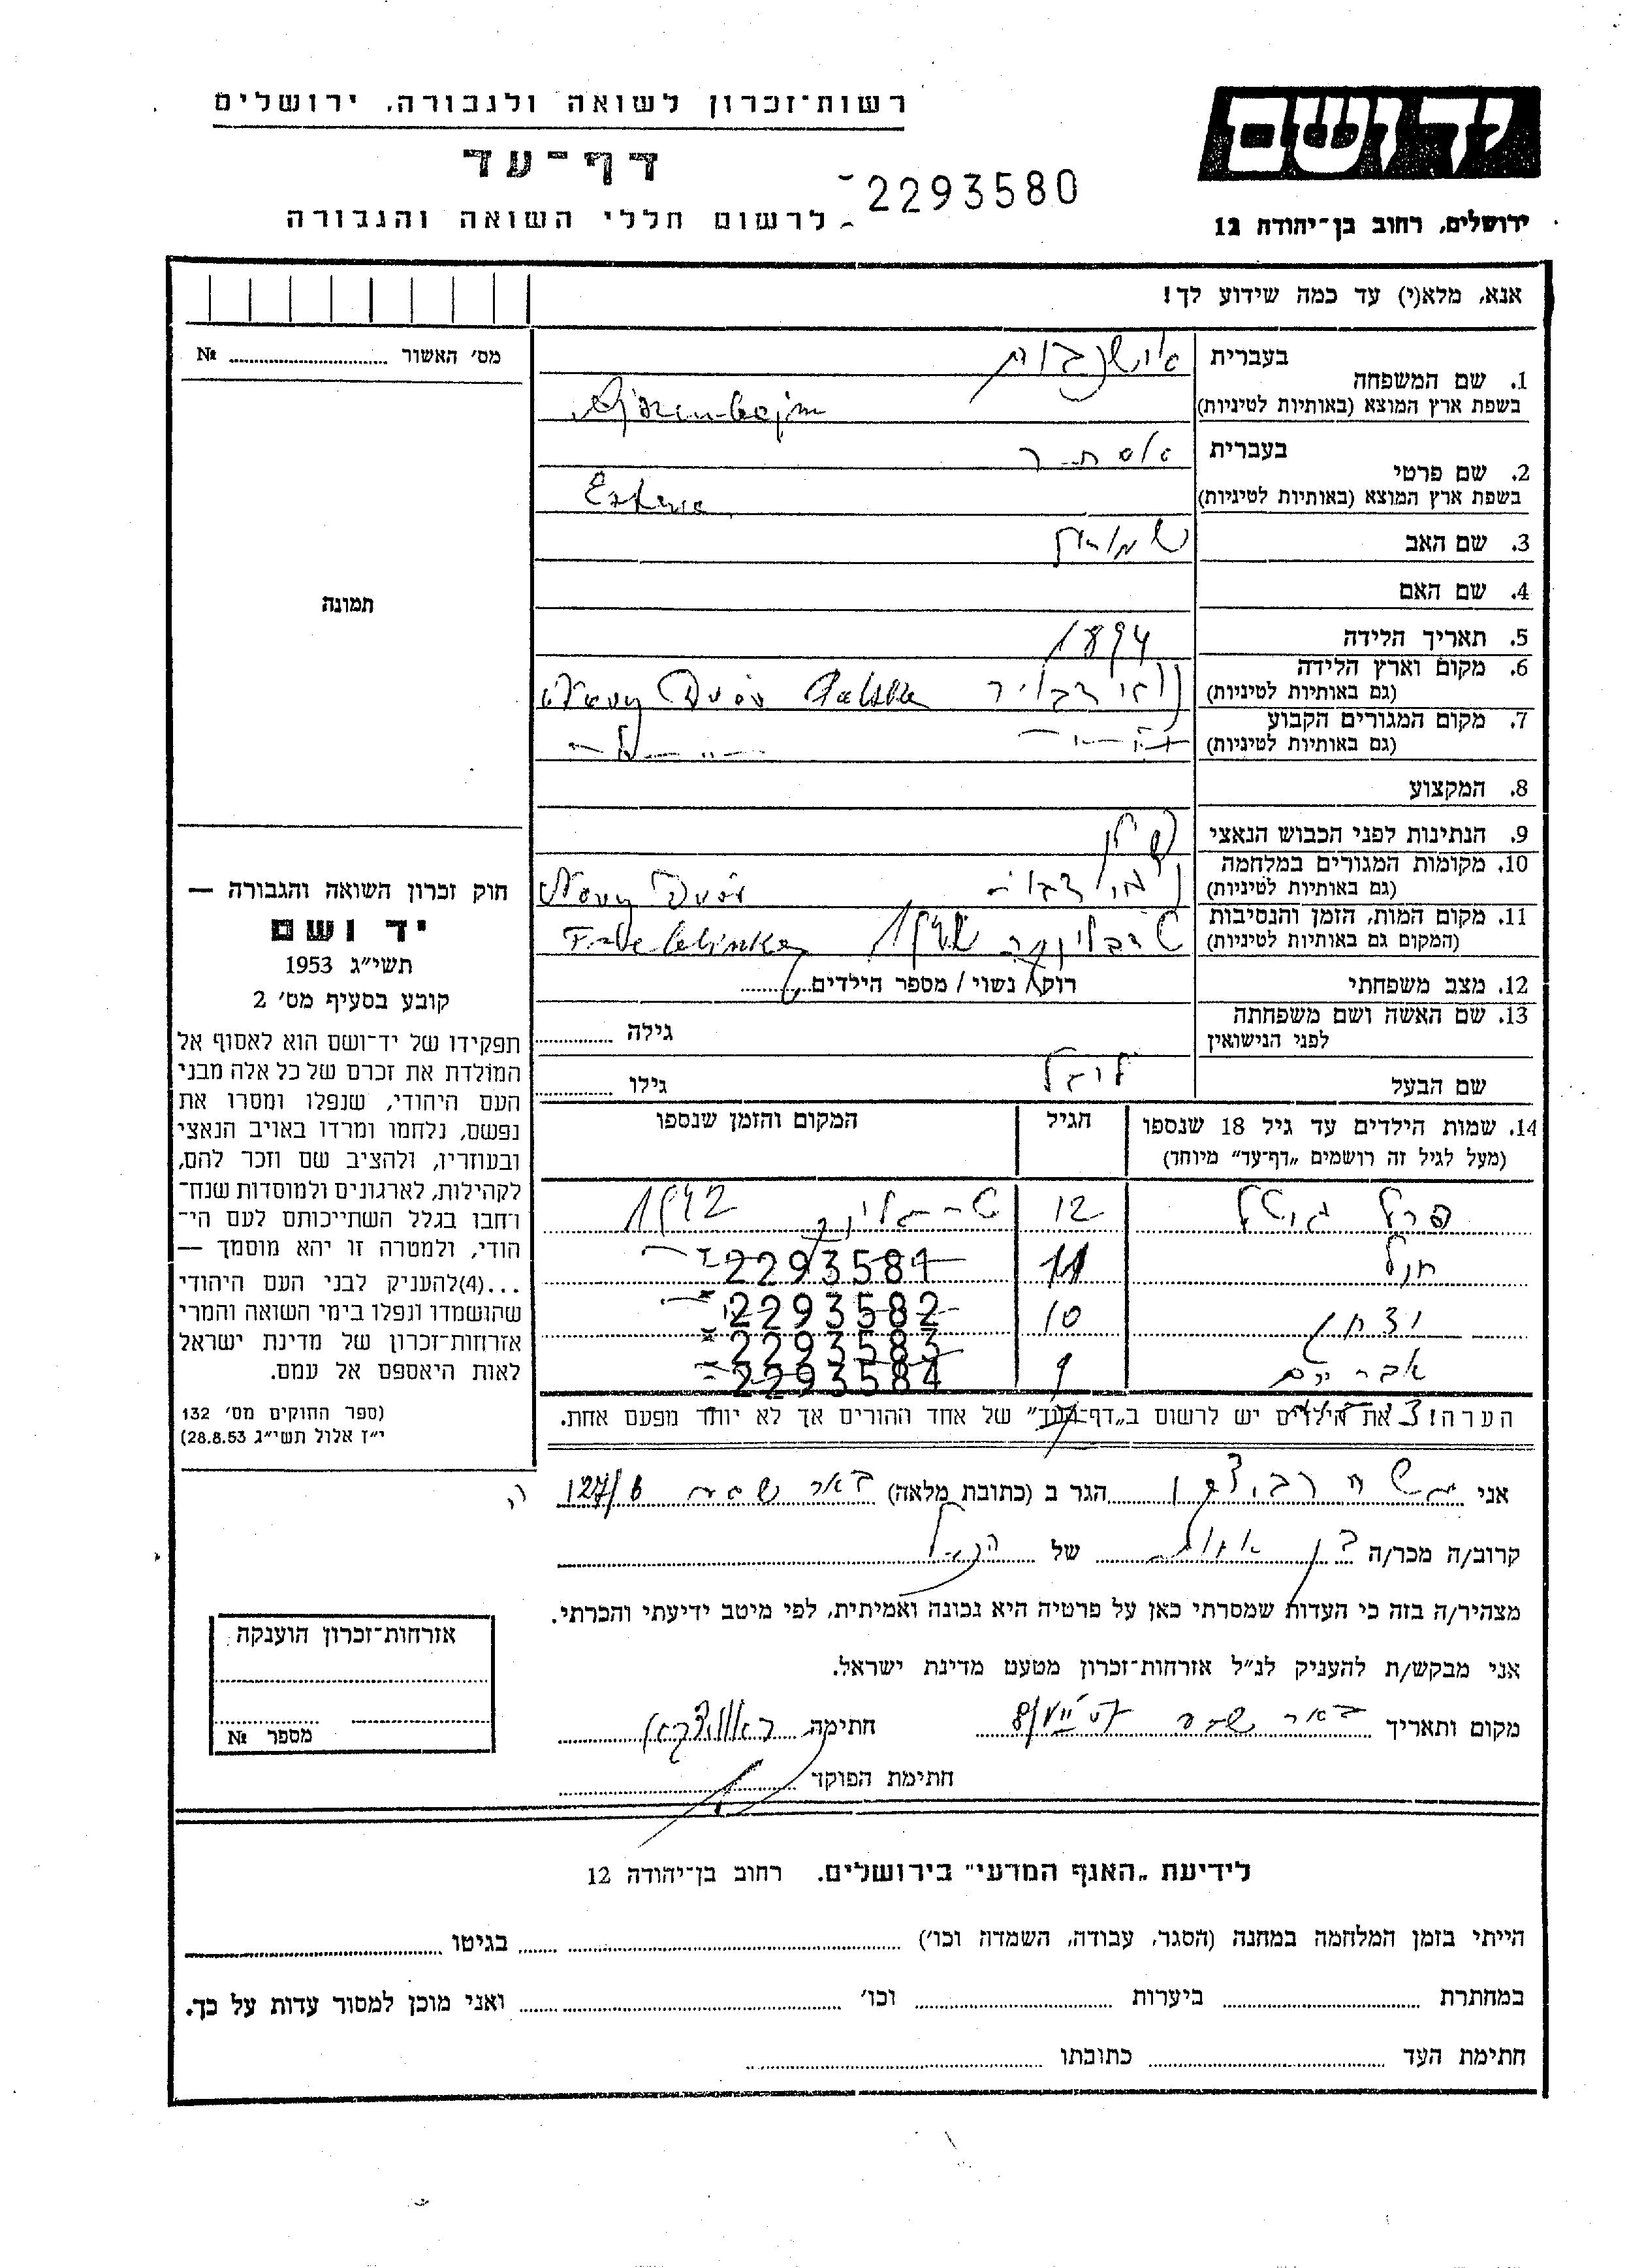 יד ושם
ירושלים, רחוב בן־יהודה 12
רשות־זכרון לשואה ולגבורה, ירושלים
דף־עד
2293580
לרשום חללי השואה והגבורה
אנא, מלא(י) עד כמה שידוע לך!
מס׳ האשור № 
1. שם המשפחה
בעברית
בשפת ארץ המוצא (באותיות לטיניות) Ajzenbojm
2. שם פרטי
בעברית אסתר
בשפת ארץ המוצא (באותיות לטיניות) Estera
3. שם האב
4. שם האם
5. תאריך הלידה 1894
6. מקום וארץ הלידה
(גם באותיות לטיניות) Nowy Dvór Polska
7. מקום המגורים הקבוע
(גם באותיות לטיניות)
8. המקצוע
9. הנתינות לפני הכבוש הנאצי פולין
10. מקומות המגורים במלחמה
(גם באותיות לטיניות) Nowy Dvór
11. מקום המות, הזמן והנסיבות
(המקום גם באותיות לטיניות) טרבלינקה
12. מצב משפחתי רווק / נשוי / מספר הילדים
13. שם האשה ושם משפחתה
לפני הנישואין
גילה
שם הבעל
גילו
14. שמות הילדים עד גיל 18 שנספו
(מעל לגיל זה רושמים „דף־עד” מיוחד)
הגיל
המקום והזמן שנספו
פרל 12 1942
2293581
יצחק 10 2293582
2293583
אברהם 9 2293584
הערה: את הילדים יש לרשום ב„דף־עד” של אחד ההורים אך לא יותר מפעם אחת.
תמונה
חוק זכרון השואה והגבורה —
יד ושם
תשי״ג 1953
קובע בסעיף מס׳ 2
תפקידו של יד־ושם הוא לאסוף אל
המולדת את זכרם של כל אלה מבני
העם היהודי, שנפלו ומסרו את
נפשם, נלחמו ומרדו באויב הנאצי
ובעוזריו, ולהציב שם וזכר להם,
לקהילות, לארגונים ולמוסדות שנח־
רחבו בגלל השתייכותם לעם הי־
הודי, ולמטרה זו יהא מוסמך —
...(4)להעניק לבני העם היהודי
שהושמדו ונפלו בימי השואה והמרי
אזרחות־זכרון של מדינת ישראל
לאות היאספם אל עמם.
(ספר החוקים מס׳ 132
י״ז אלול תשי״ג 28.8.53)
אני משה הגר ב (כתובת מלאה) באר שבע 127/6
קרוב/ה מכר/ה בן של הנ״ל
מצהיר/ה בזה כי העדות שמסרתי כאן על פרטיה היא נכונה ואמיתית, לפי מיטב ידיעתי והכרתי.
אני מבקש/ת להעניק לנ״ל אזרחות־זכרון מטעם מדינת ישראל.
מקום ותאריך באר שבע
חתימה
חתימת הפוקד
אזרחות־זכרון הוענקה
מספר №
לידיעת „האגף המדעי” בירושלים. רחוב בן־יהודה 12
הייתי בזמן המלחמה במחנה (הסגר, עבודה, השמדה וכו׳) בגיטו
במחתרת ביערות וכו׳ ואני מוכן למסור עדות על כך.
חתימת העד כתובתו